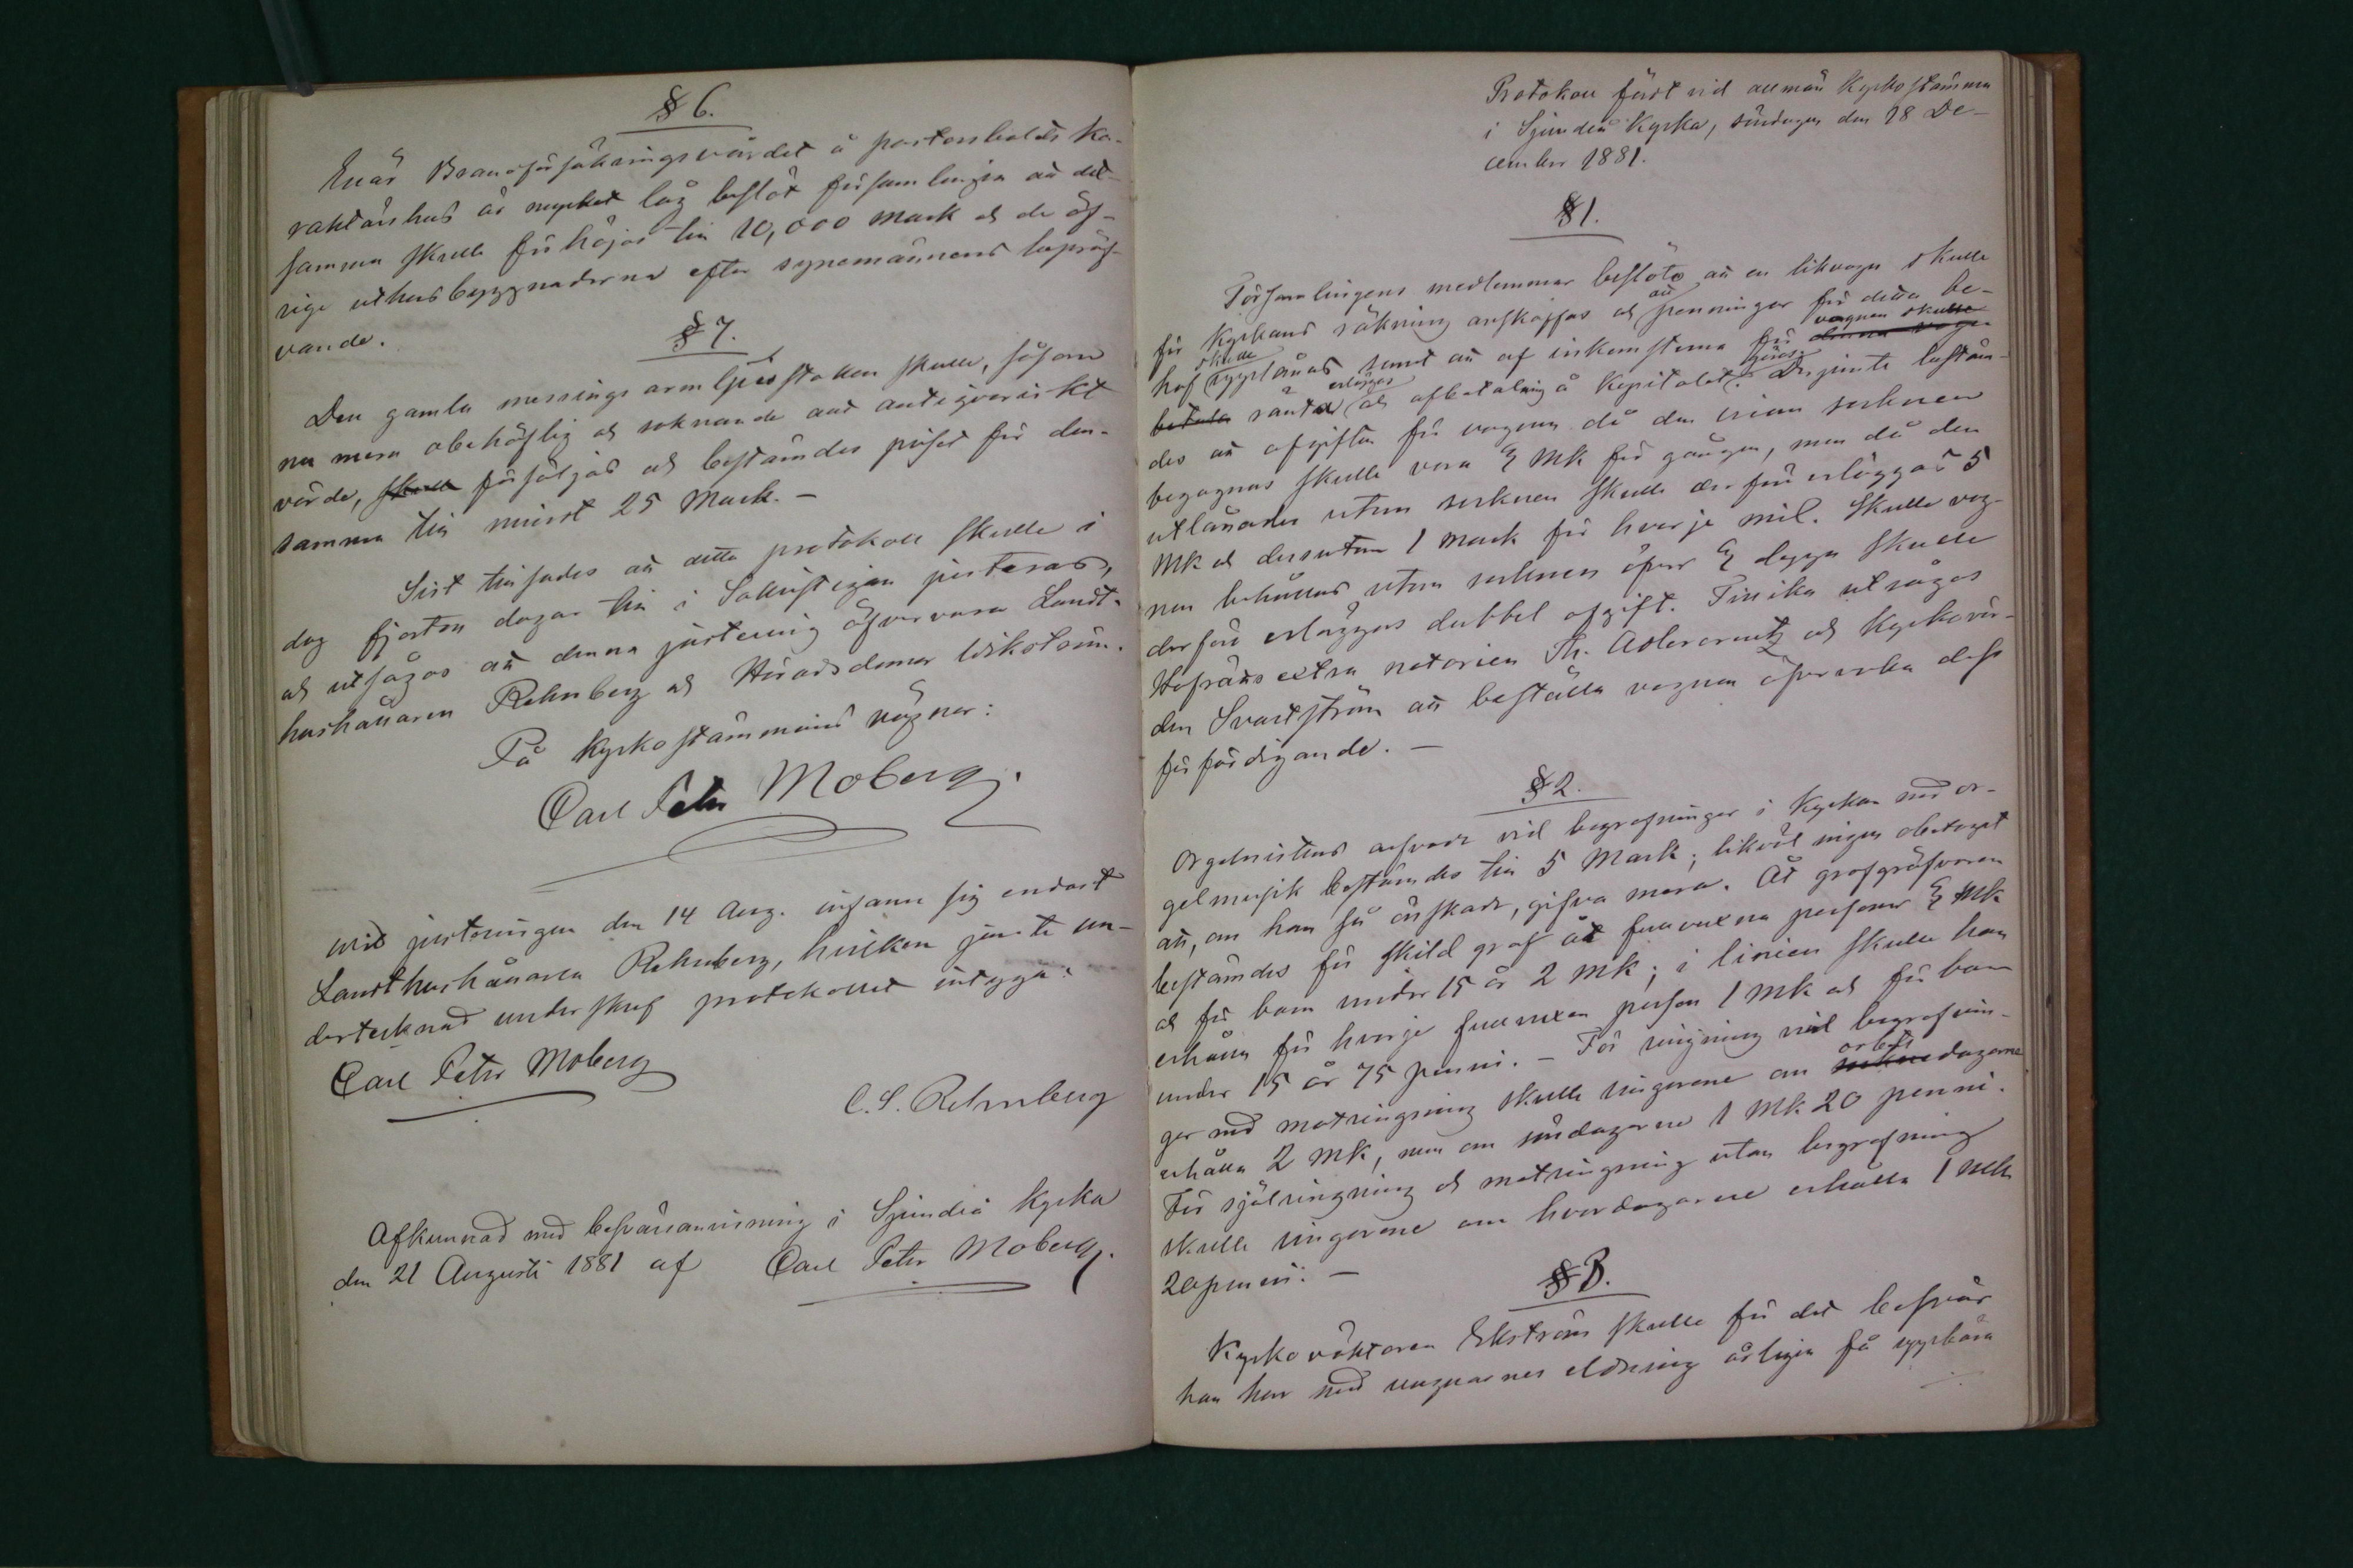 § 6.
Enär Brandförsäkringsvärdet å pastorsbolets ka-
raktärshus är mycket låg beslöt församlingen att det-
samma skulle förhöjas till 10,000 mark och de öf-
rige uthusbyggnaderna efter synemännens bepröf-
vande.
§ 7.
Den gamla messings armljusstaken skulle, såsom
nu mera obehöflig och saknande allt antiqvariskt
värde, skulle försäljas och bestämdes priset för den-
samma till minst 25 Mark. -
Sist tillsades att detta protokoll skulle i
dag fjorton dagar till i Sakristigan justeras,
och utsågos att denna justering öfvervara Landt-
hushållaren Rehnberg och Häradsdomar Wikström.
På Kyrkostämmans vägnar:
Carl Peter Moberg.
Wid justeringen den 14 Aug. infann sig endast
Landthushållaren Rehnberg, hvilken jemte un-
dertecknad underskref protokollet intyga:
Carl Peter Moberg
C. S. Rehnberg
Afkunnad med besvärsanvisning i Sjundeå Kyrka
den 21 Augusti 1881 af Carl Peter Moberg.
Protokoll fördt vid allmän Kyrkostämma
i Sjundeå Kyrka, söndagen den 18 De-
cember 1881.
§ 1.
Församlingens medlemmar beslöto att en likvagn skulle
för Kyrkans räkning anskaffas och att penningar för detta be-
hof skulle upplånas samt att af inkomsterna för denna vagn vagnen skulle
betala ränta erläggas och afbetalning å Kapitalet göras. Derjemte bestäm-
des att afgiften för vagnen då den inom socknen
begagnas skulle vara 3 Mk för gången, men då den
utlånades utom socknen skulle derför erläggas 5
Mk och dessutom 1 mark för hvarje mil. Skulle vag-
nen behållas utom socknen öfver 3 dagar skulle
derföre erläggas dubbel afgift. Tillika utsågos
Hofrätts extra notarien Th. Adlercreutz och Kyrkovär-
den Svartström att beställa vagnen öfvervaka dess
förfärdigande. -
§ 2.
Orgelnistens arfvode vid begrafningar i Kyrkan med or-
gelmusik bestämdes till 5 Mark; likväl ingen obetaget
att, om han så önskade, gifva mera. Åt grafgräfvaren
bestämdes för skild graf åt fullvuxna personer 3 Mk
och för barn under 15 år 2 Mk; i linien skulle han
erhålla för hvarje fullvuxen person 1 Mk och för barn
under 15 år 75 penni. - För ringning vid begrafnin-
gar med motringning skulle ringarene om sökne arbets dagarne
erhålla 2 Mk, men om söndagarne 1 Mk 20 penni.
För själringning och motringning utan begrafning
skulle ringarene om hvardagarne erhålla 1 Mk
20 penni. -
§ 3.
Kyrkovaktaren Ekström skulle för det besvär
han har med ungnarnes eldning årligen få uppbära